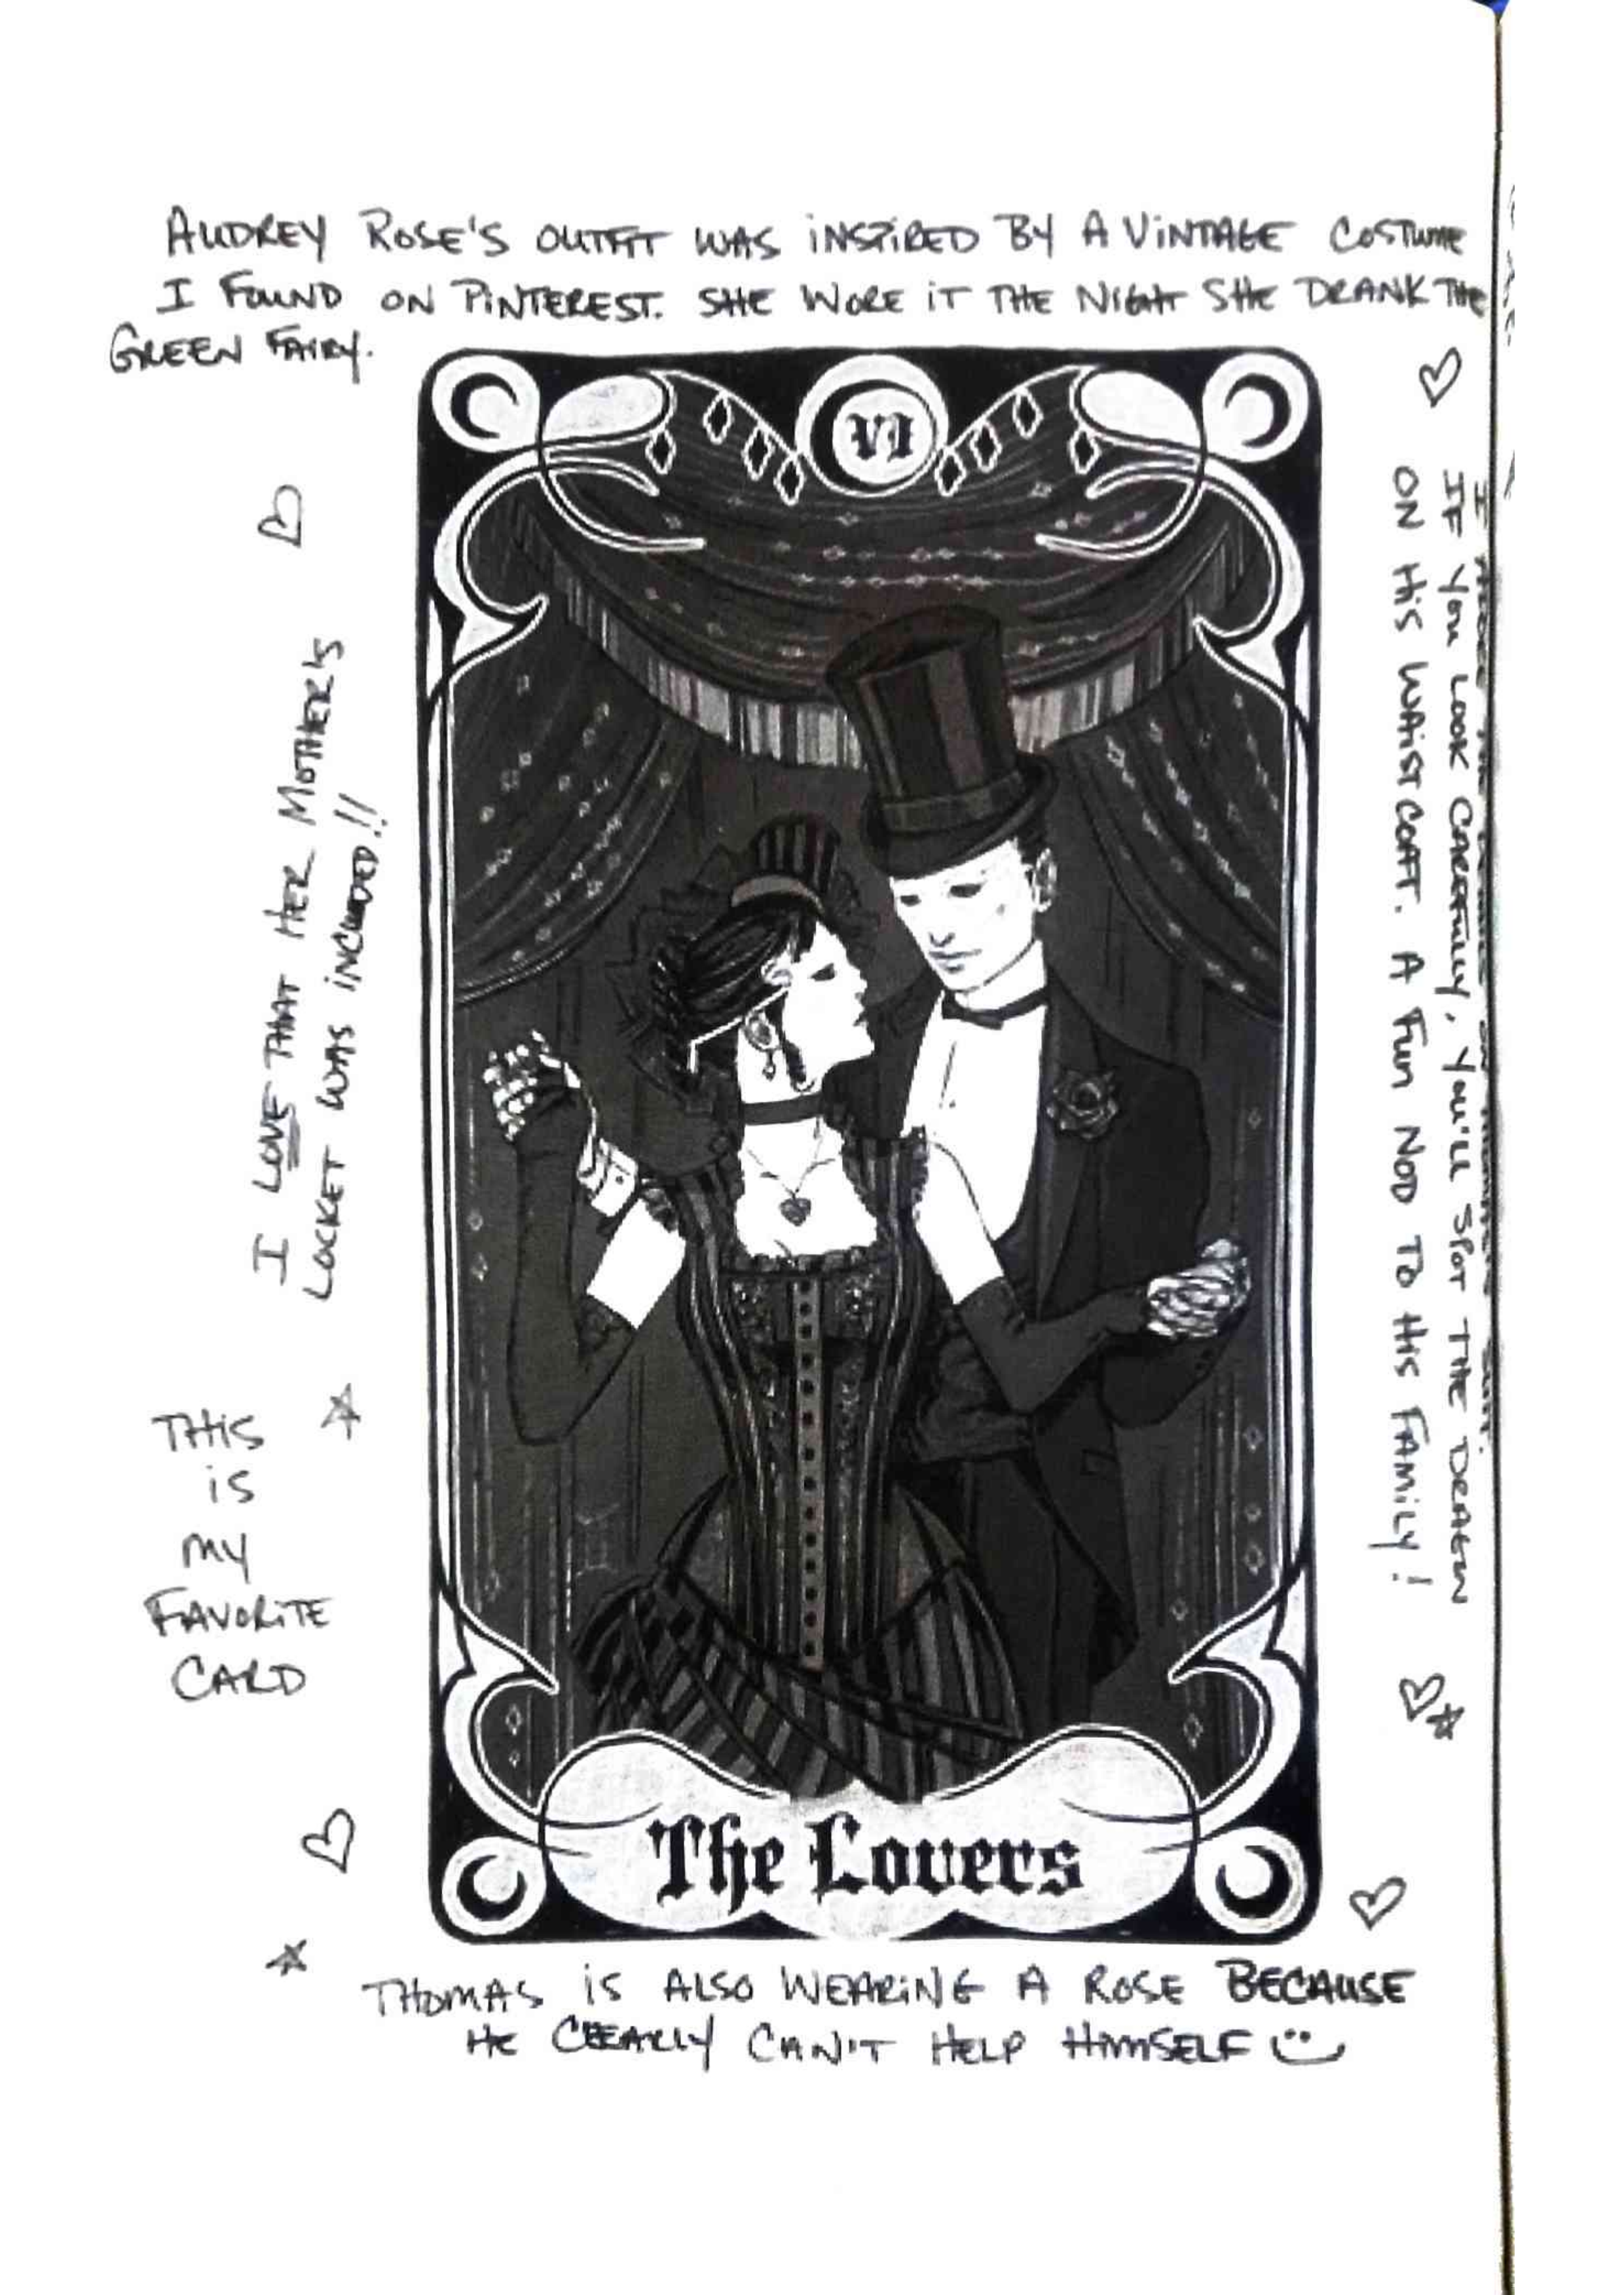 AUDREY ROSE'S OUTFIT WAS INSPIRED BY A VINTAGE COSTUME
I FOUND ON PINTEREST. SHE WORE IT THE NIGHT SHE DRANK THE
GREEN FAIRY.
VI
I LOVE THAT HER MOTHER'S
LOCKET WAS INCLUDED!!
THIS
IS
MY
FAVORITE
CARD
I THE ON
IF YOU LOOK CAREFULLY, YOU'LL SPOT THE DRAGON
ON HIS WAISTCOAT. A FUN NOD TO HIS FAMILY!
The Lovers
THOMAS IS ALSO WEARING A ROSE BECAUSE
HE CLEARLY CAN'T HELP HIMSELF